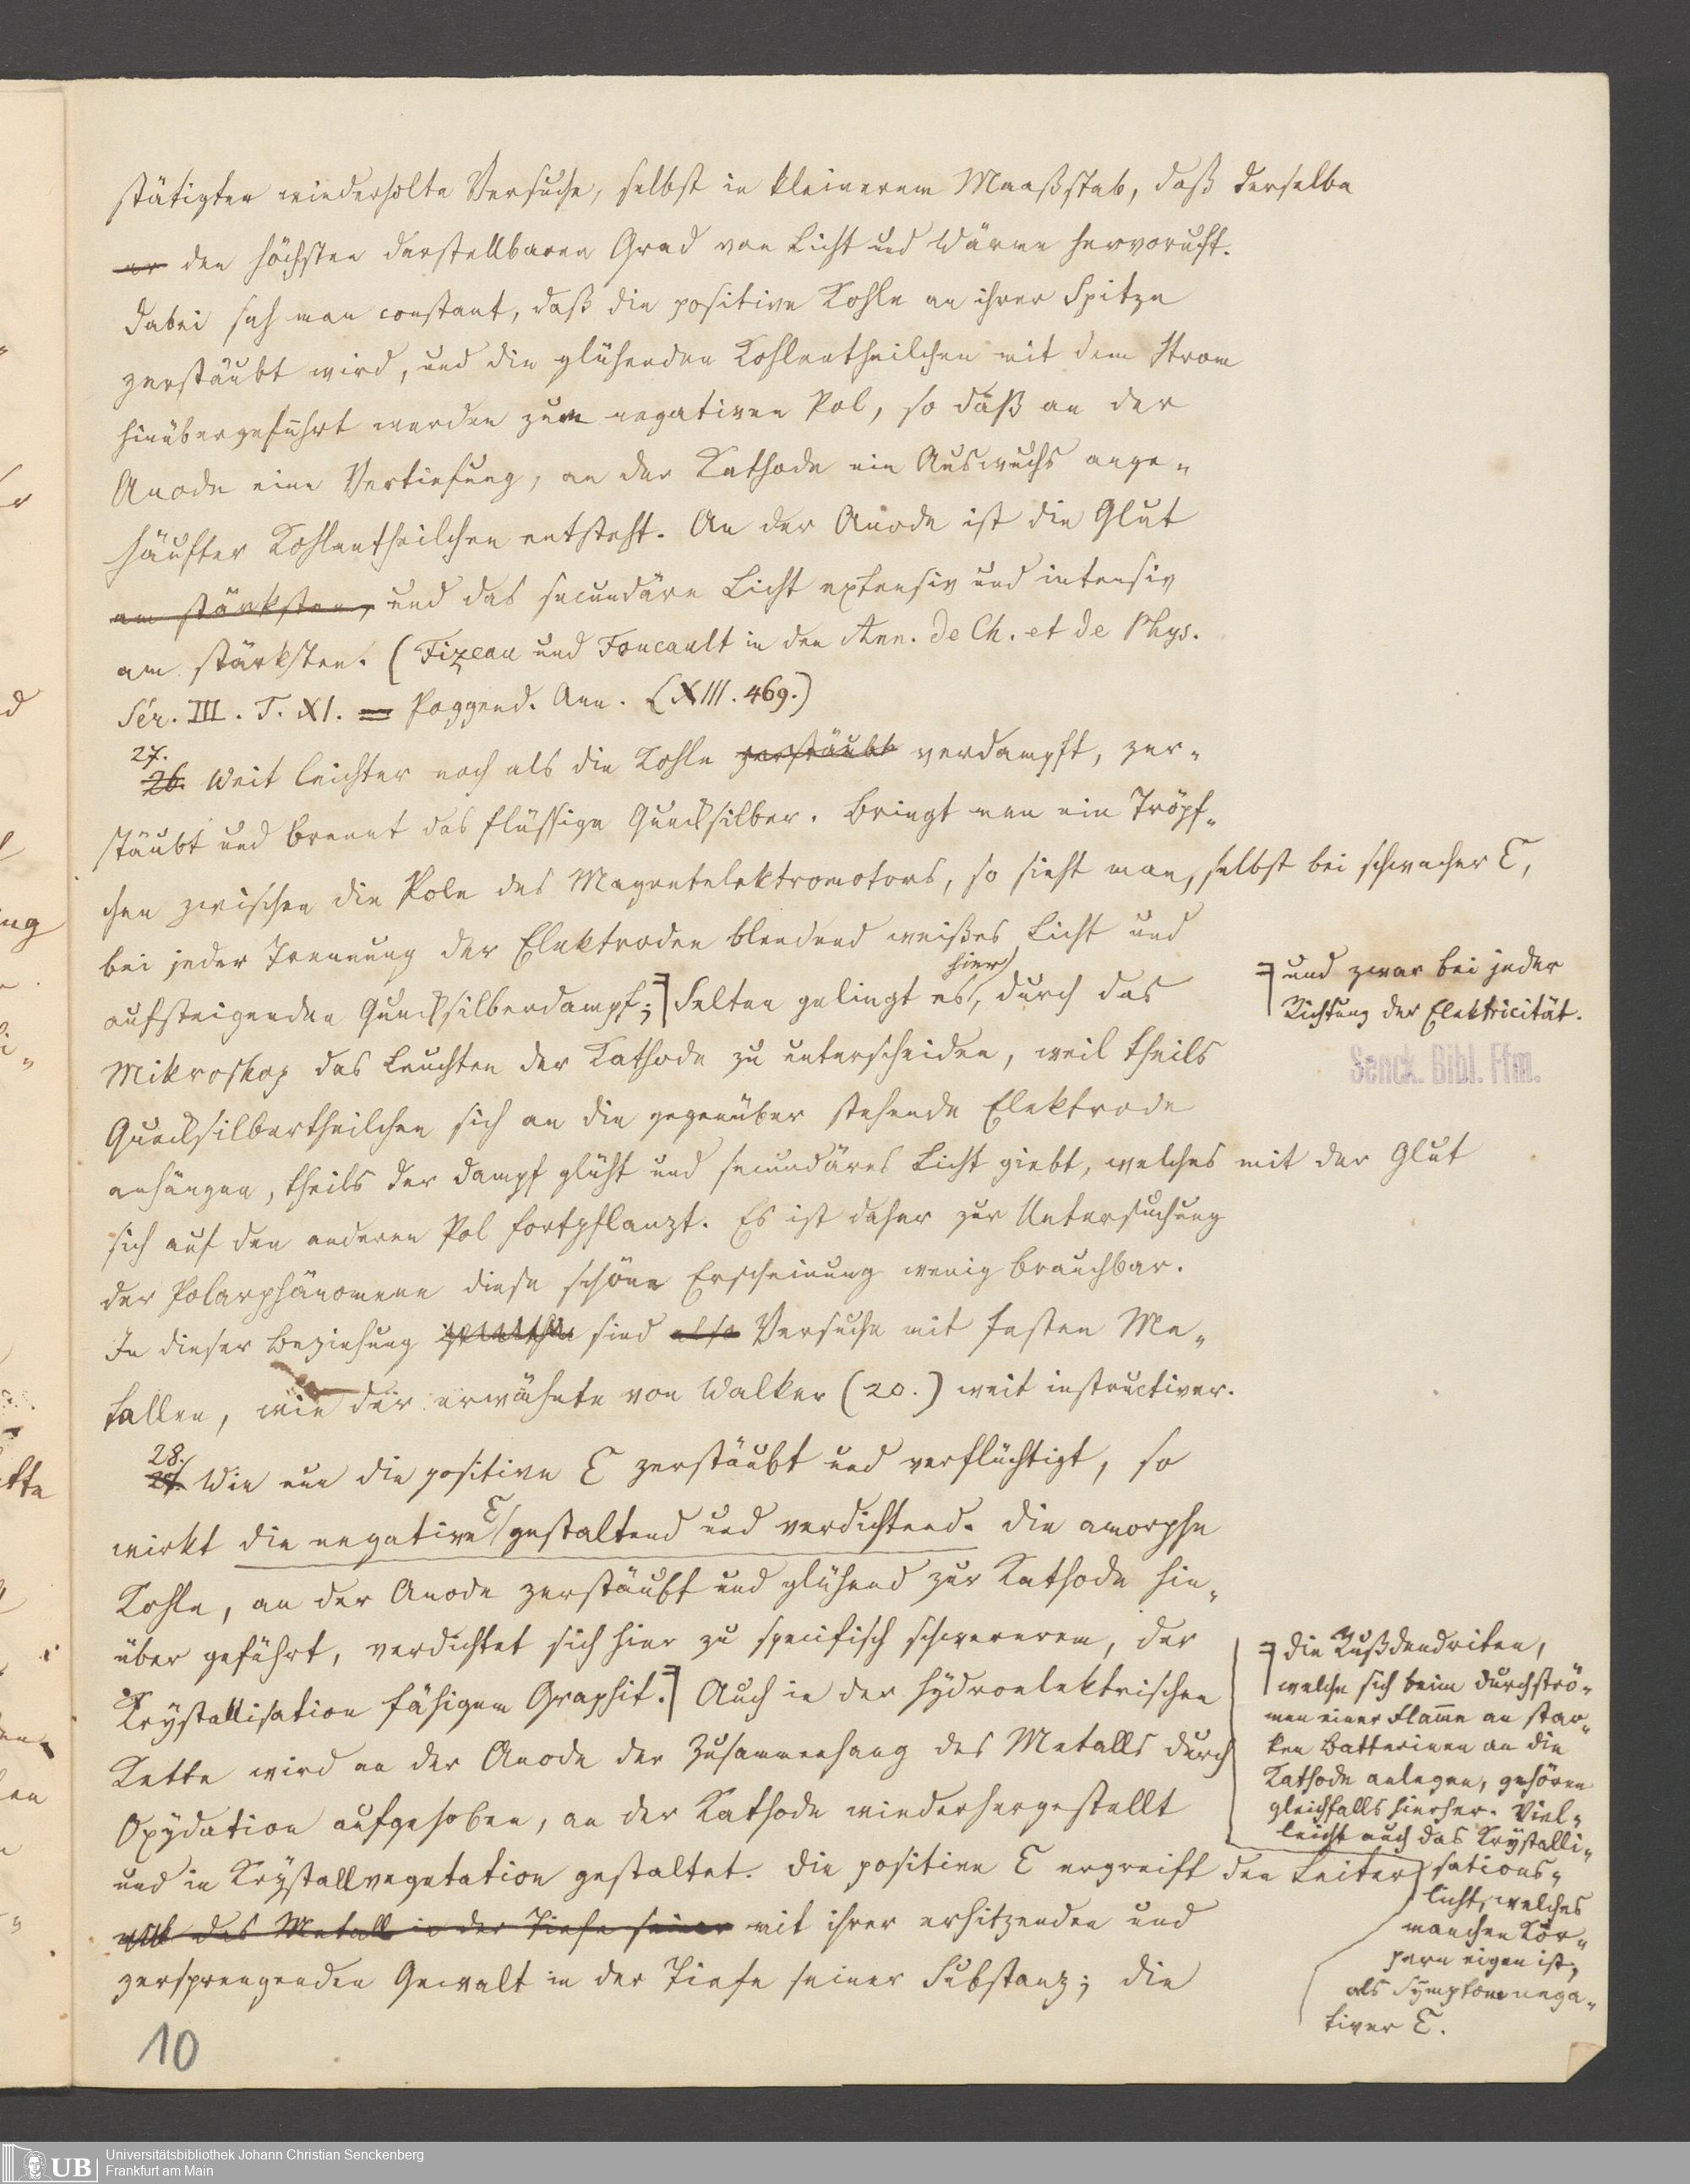 stätigten wiederholte Versuche, selbst in kleinerem Maaßstab, daß derselbe
er den höchsten darstellbaren Grad von Licht und Wärme hervorruft.
Dabei sah man constant, daß die positive Kohle an ihrer Spitze
zerstäubt wird, und die glühenden Kohlentheilchen mit dem Strom
hinübergeführt werden zum negativen Pol, so daß an der
Anode eine Vertiefung, an der Kathode ein Auswuchs ange-
häufter Kohlentheilchen entsteht. An der Anode ist die Glut
am stärksten, und das secundäre Licht extensiv und intensiv
am stärksten. (Fizeau und Foucault in den Ann. de Ch. et de Phys.
Sér. III. T. XI. = Poggend. Ann. LXIII. 469.)
27.
26. Weit leichter noch als die Kohle zerstäubt verdampft, zer-
stäubt und brennt das flüssige Quecksilber. Bringt man ein Tröpf-
chen zwischen die Pole des Magnetelektromotors, so sieht man, selbst bei schwacher E,
bei jeder Trennung der Elektroden blendend weißes Licht und
hier
aufsteigenden Quecksilberdampf; Selten gelingt es, durch das
und zwar bei jeder
Richtung der Elektricität.
Mikroskop das Leuchten der Kathode zu unterscheiden, weil theils
Senck. Bibl. Ffm.
Quecksilbertheilchen sich an die gegenüber stehende Elektrode
anhängen, theils der Dampf glüht und secundäres Licht giebt, welches mit der Glut
sich auf den anderen Pol fortpflanzt. Es ist daher zur Untersuchung
der Polarphänomene diese schöne Erscheinung wenig brauchbar.
In dieser Beziehung sind also Versuche mit festen Me-
tallen, wie der erwähnte von Walker (20.) weit instructiver.
28.
27. Wie nun die positive E zerstäubt und verflüchtigt, so
E
wirkt die negative gestaltend und verdichtend. Die amorphe
Kohle, an der Anode zerstäubt und glühend zur Kathode hin-
über geführt, verdichtet sich hier zu specifisch schwererem, der
Krystallisation fähigem Graphit. Auch in der hydroelektrischen
Kette wird an der Anode der Zusammenhang des Metalls durch
Oxydation aufgehoben, an der Kathode wiederhergestellt
und in Krystallvegetation gestaltet. Die positive E ergreift den Leiter
das Metall in der Tiefe seiner mit ihrer erhitzenden und
zersprengenden Gewalt in der Tiefe seiner Substanz; die
die Rußdendriten,
welche sich beim Durchströ-
men einer Flamme an star-
ken Batterieen an die
Kathode anlegen, gehören
gleichfalls hierher. Viel-
leicht auch das Krystalli-
sations-
licht, welches
manchen Kör-
pern eigen ist,
als Symptom nega-
tiver E.
10
UB
Universitätsbibliothek Johann Christian Senckenberg
Frankfurt am Main